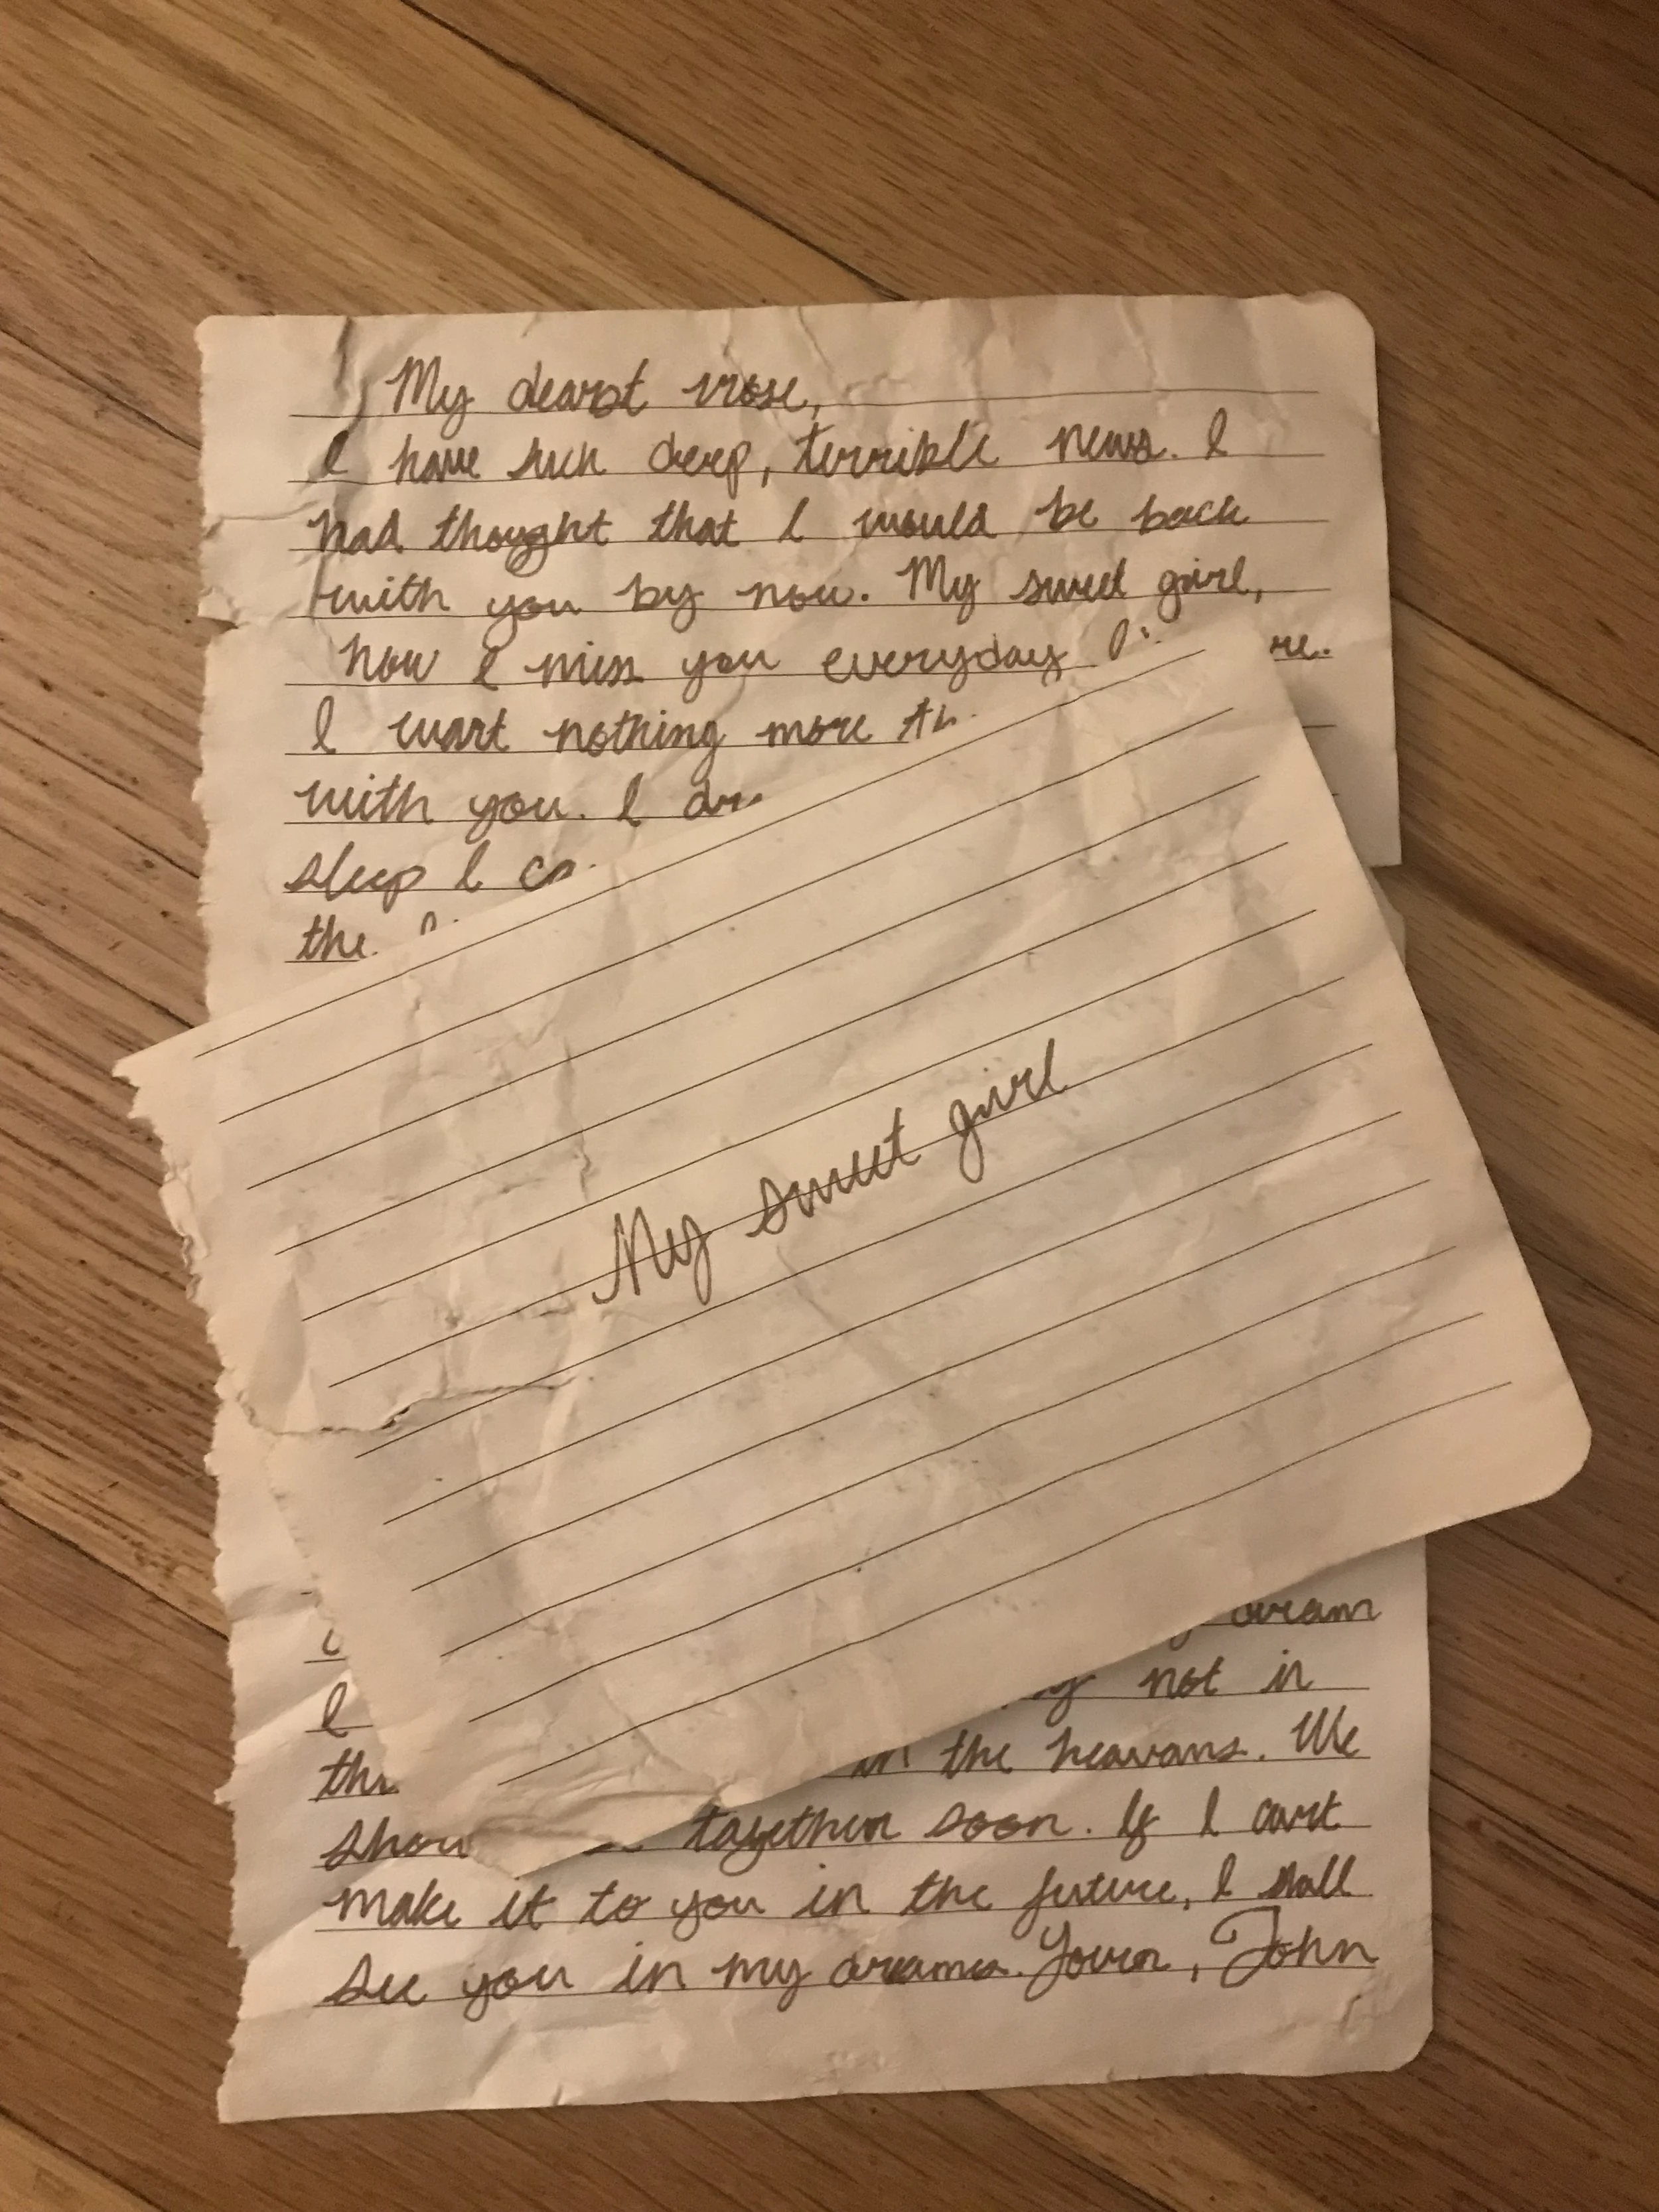 My dearst rose,
I have such deep, terrible news. I
had thought that I would be back
with you by now. My sweet girl,
how I miss you everyday
I want nothing more
with you. I
sleep I
the
My sweet girl
dream
I not in
in the heavans. We
together soon. If I cant
make it to you in the future, I shall
see you in my dreams. Yours, John